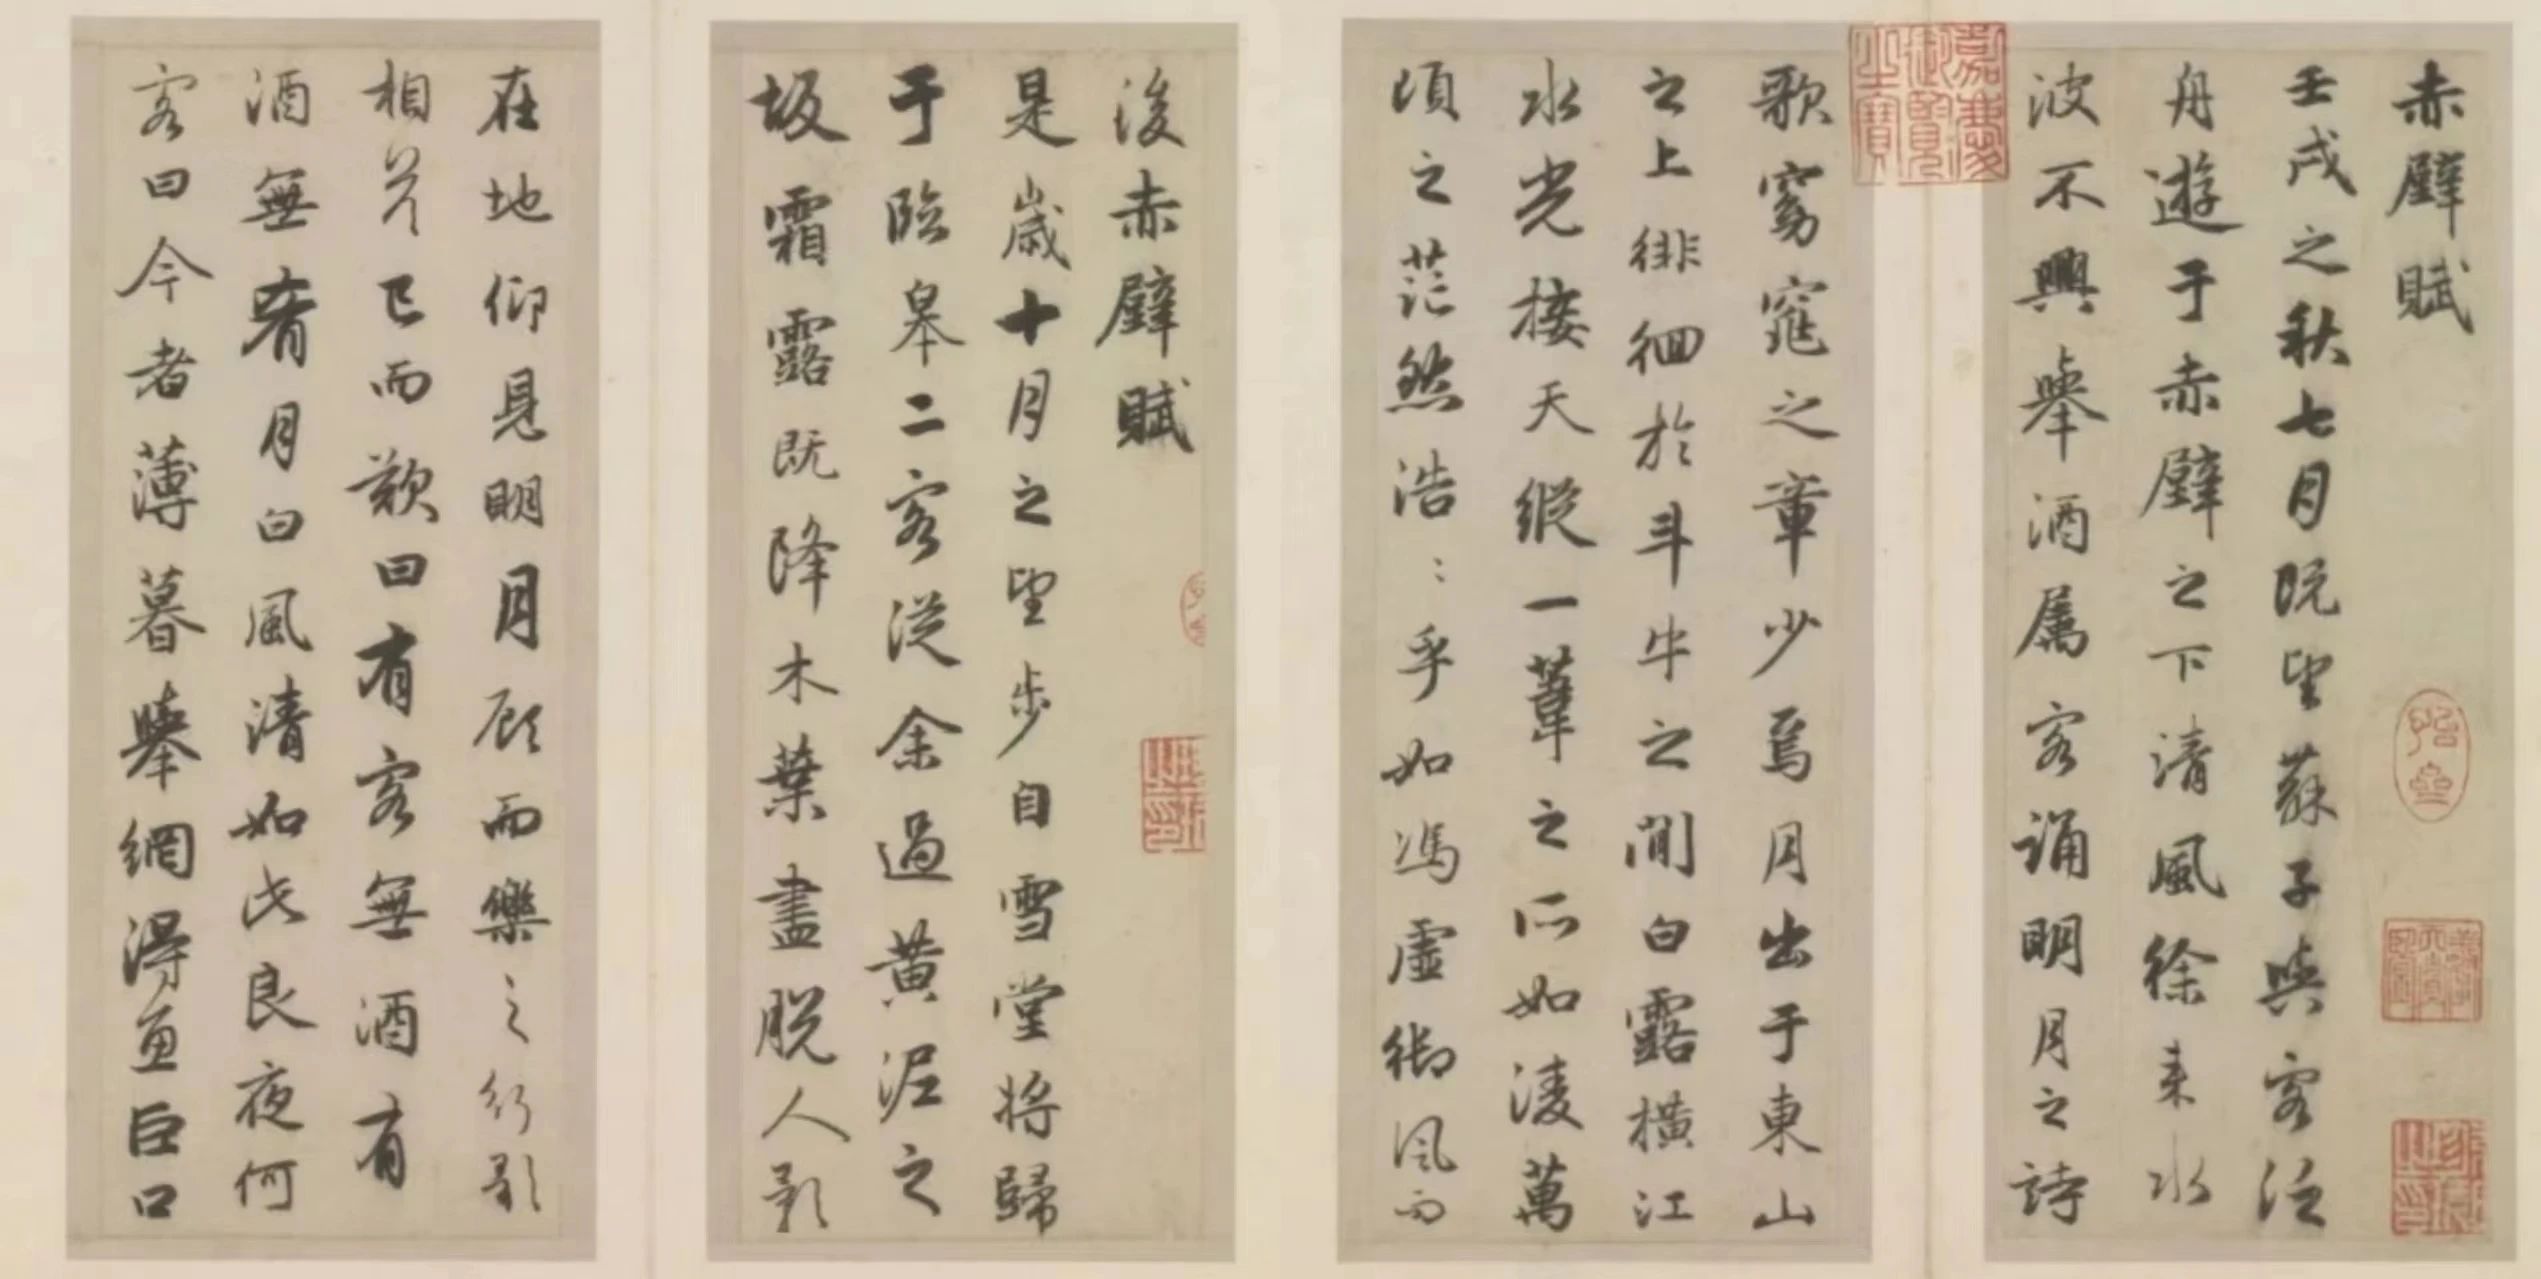 赤壁賦
壬戌之秋七月既望蘇子與客泛
舟遊于赤壁之下清風徐来水
波不興舉酒属客誦明月之詩
嘉慶御覽之寶
歌窈窕之章少焉月出于東山
之上徘徊於斗牛之間白露橫江
水光接天縱一葦之所如淩萬
頃之茫然浩〻乎如馮虛御風而
後赤壁賦
是歲十月之望步自雪堂將歸
于臨皋二客從余過黃泥之
坂霜露既降木葉盡脫人影
在地仰見明月顧而樂之行歌
相答已而歎曰有客無酒有
酒無肴月白風清如此良夜何
客曰今者薄暮舉網得魚巨口